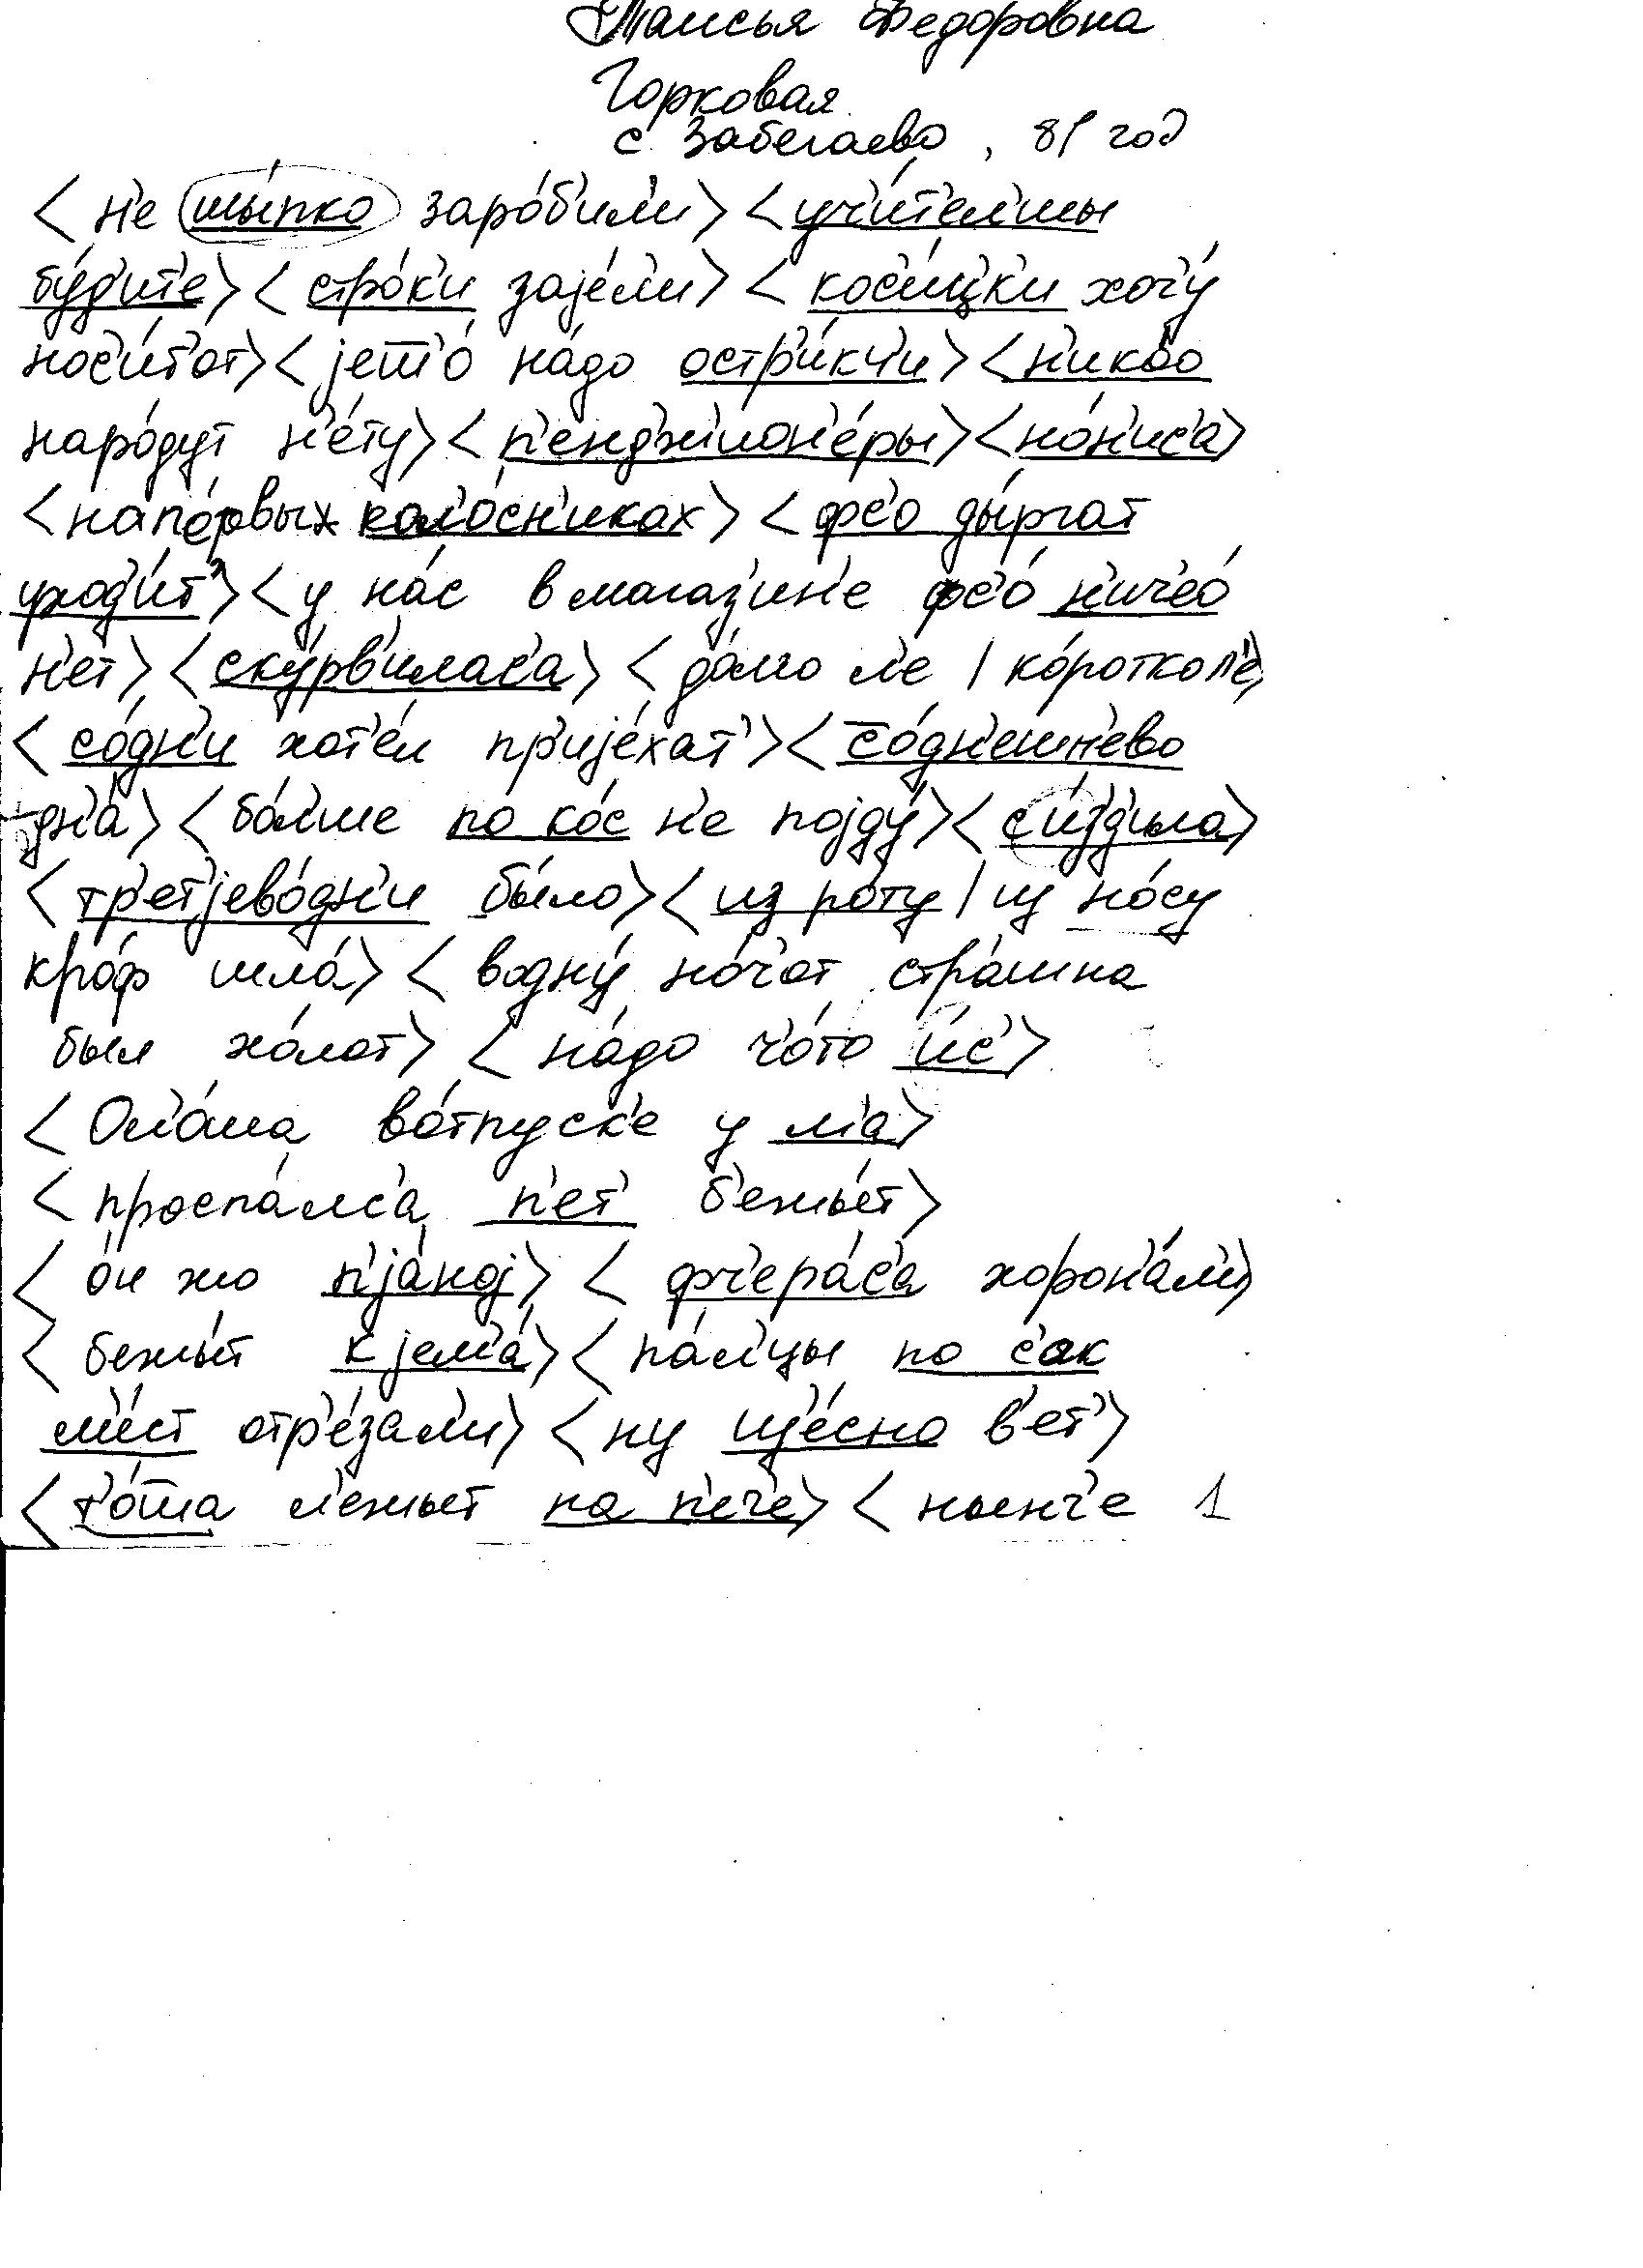 Таисья Федоровна
Горковая
с. Забегаево, 81 год
<н'е шы́пко заро́б'ил'и> <уч'и́т'ел'шы
бу́д'ит'е> <стро́к'и зајéл'и> <кос'и́цк'и хоч'у́
нос'и́т'от> <јешто́ на́до остр'и́кч'и> <н'ико́о
наро́дут н'е́ту> <п'енджионе́ры> <но́н'ис'а>
<напе́рвых кол'о́сн'иках> <фс'о ды́ргат
уход'и́т'> <у на́с в магаз'ин'е фс'о́ н'ич'ео́
н'ет> <ску́рв'илас'а> <до́лго л'е | ко́ротко л'е>
<со́дн'и хот'е́л пр'ијéхат'> <со́дн'ешн'ево
дн'а́> <бо́л'ше по ко́с н'е појду́> <с'и́зд'ила>
<тр'ет'јево́дн'и бы́ло> <из ро́ту | из но́су
кро́ф шла́> <водну́ но́ч'от стра́шна
был хо́лот> <на́до ч'о́то и́с'>
<Ол'о́ша во́тпуск'е у м'а>
<проспа́лс'а п'ет' б'ежы́т>
<о́н жо п'ја́ној> <фч'ера́с'а хорон'а́л'и>
<бежы́т к јем'а́> <па́л'цы по с'ак
м'е́ст отр'е́зал'и> <ну ц'е́сно в'ет'>
<т'о́ша л'ежыт на п'еч'е> <нынч'е 1